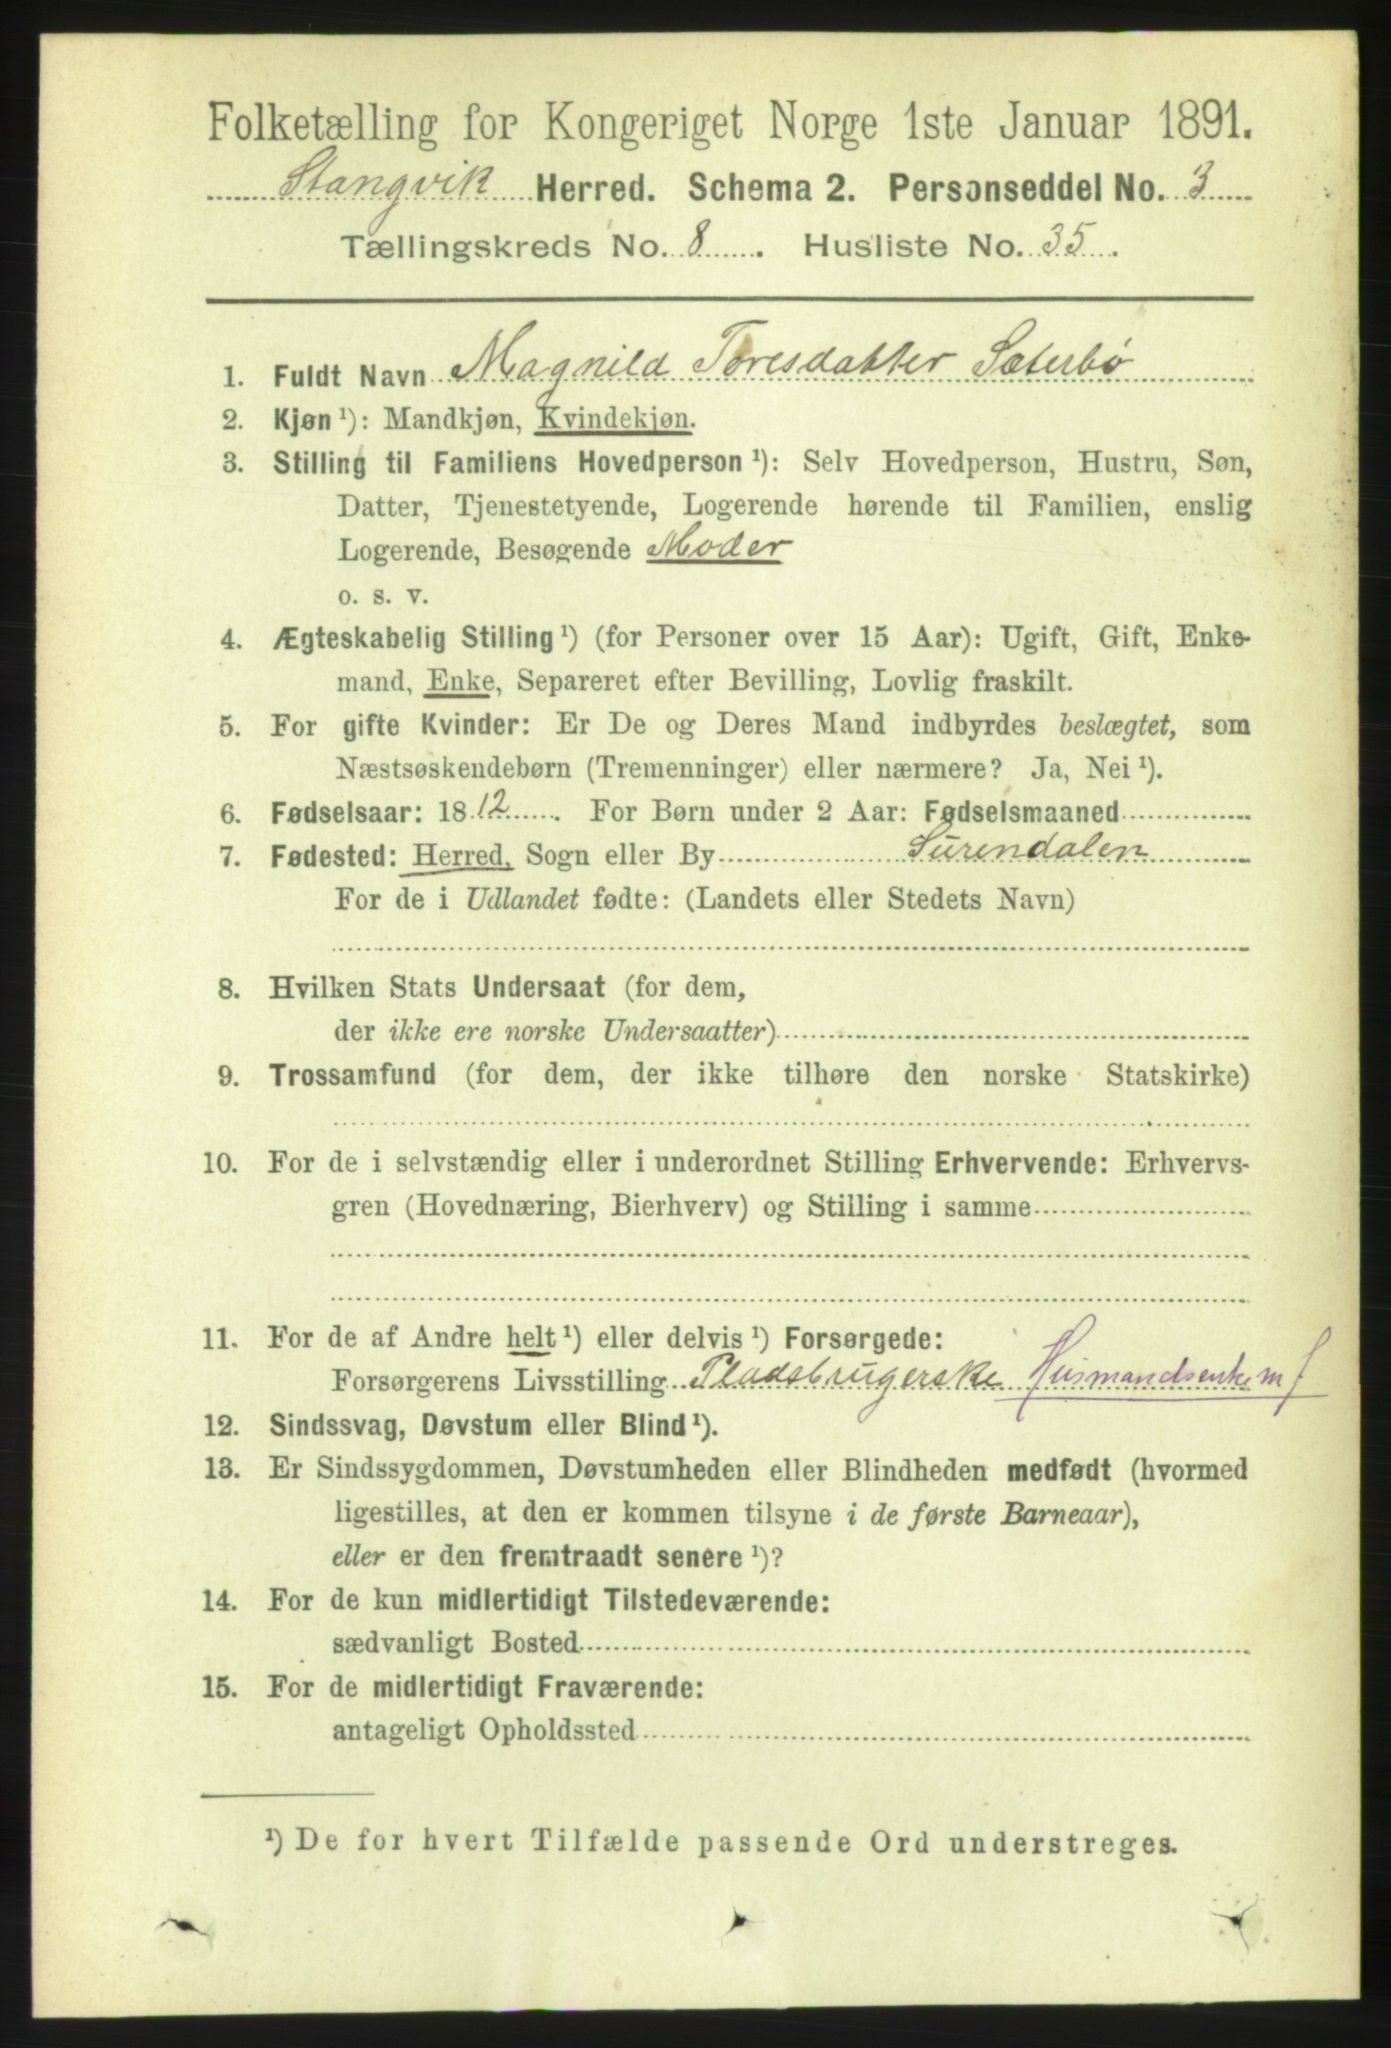 Folketælling for Kongeriget Norge 1ste Januar 1891.
Stangvik Herred. Schema 2. Personseddel No. 3
Tællingskreds No. 8. Husliste No. 35.
1. Fuldt Navn Magnild Toresdatter Sæterbø
2. Kjøn ¹): Mandkjøn, Kvindekjøn.
3. Stilling til Familiens Hovedperson ¹): Selv Hovedperson, Hustru, Søn,
Datter, Tjenestetyende, Logerende hørende til Familien, enslig
Logerende, Besøgende Moder
o. s. v.
4. Ægteskabelig Stilling ¹) (for Personer over 15 Aar): Ugift, Gift, Enke-
mand, Enke, Separeret efter Bevilling, Lovlig fraskilt.
5. For gifte Kvinder: Er De og Deres Mand indbyrdes beslægtet, som
Næstsøskendebørn (Tremenninger) eller nærmere? Ja, Nei ¹).
6. Fødselsaar: 1812. For Børn under 2 Aar: Fødselsmaaned
7. Fødested: Herred, Sogn eller By Surendalen
For de i Udlandet fødte: (Landets eller Stedets Navn)
8. Hvilken Stats Undersaat (for dem,
der ikke ere norske Undersaatter)
9. Trossamfund (for dem, der ikke tilhøre den norske Statskirke)
10. For de i selvstændig eller i underordnet Stilling Erhvervende: Erhvervs-
gren (Hovednæring, Bierhverv) og Stilling i samme
11. For de af Andre helt ¹) eller delvis ¹) Forsørgede:
Forsørgerens Livsstilling Pladsbrugerske Husmandsenke m f
12. Sindssvag, Døvstum eller Blind ¹).
13. Er Sindssygdommen, Døvstumheden eller Blindheden medfødt (hvormed
ligestilles, at den er kommen tilsyne i de første Barneaar),
eller er den fremtraadt senere ¹)?
14. For de kun midlertidigt Tilstedeværende:
sædvanligt Bosted
15. For de midlertidigt Fraværende:
antageligt Opholdssted
¹) De for hvert Tilfælde passende Ord understreges.